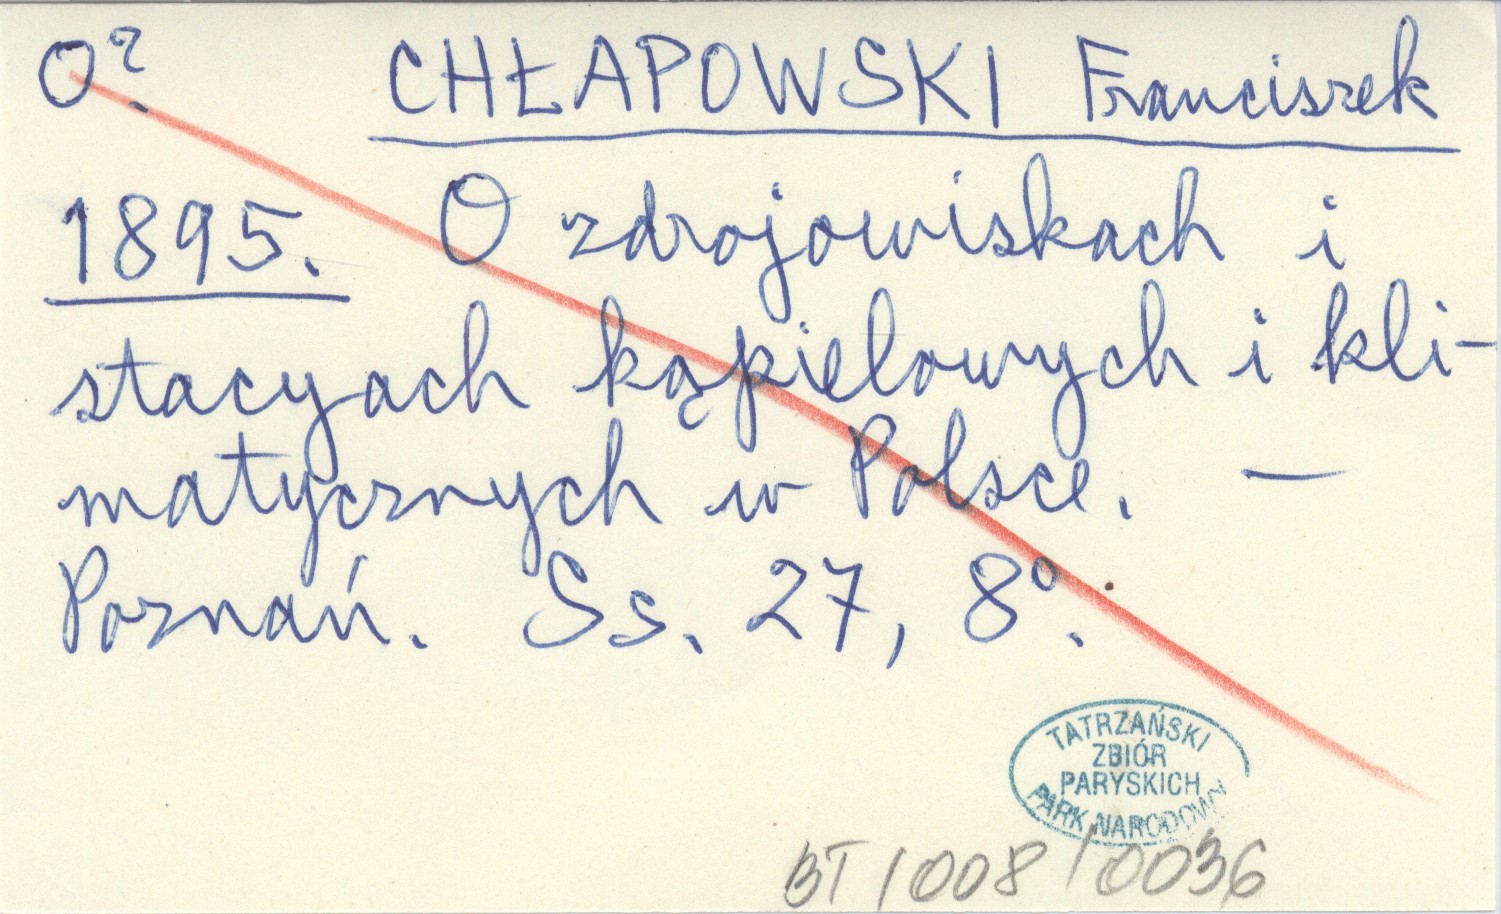 O?
CHŁAPOWSKI Franciszek
1895. O zdrojowiskach i
stacyach kąpielowych i kli-
matycznych w Polsce. —
Poznań. Ss. 27, 8°.
TATRZAŃSKI
ZBIÓR
PARYSKICH
PARK NARODOWY
BT/008/0036